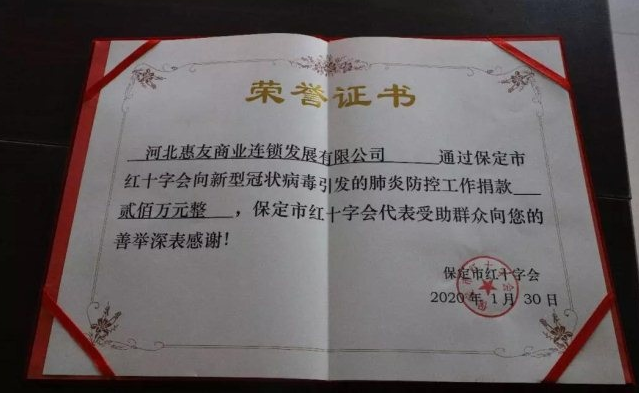 荣誉证书
河北惠友商业连锁发展有限公司 通过保定市
红十字会向新型冠状病毒引发的肺炎防控工作捐款
贰佰万元整，保定市红十字会代表受助群众向您的
善举深表感谢！
保定市红十字会
2020年1月30日